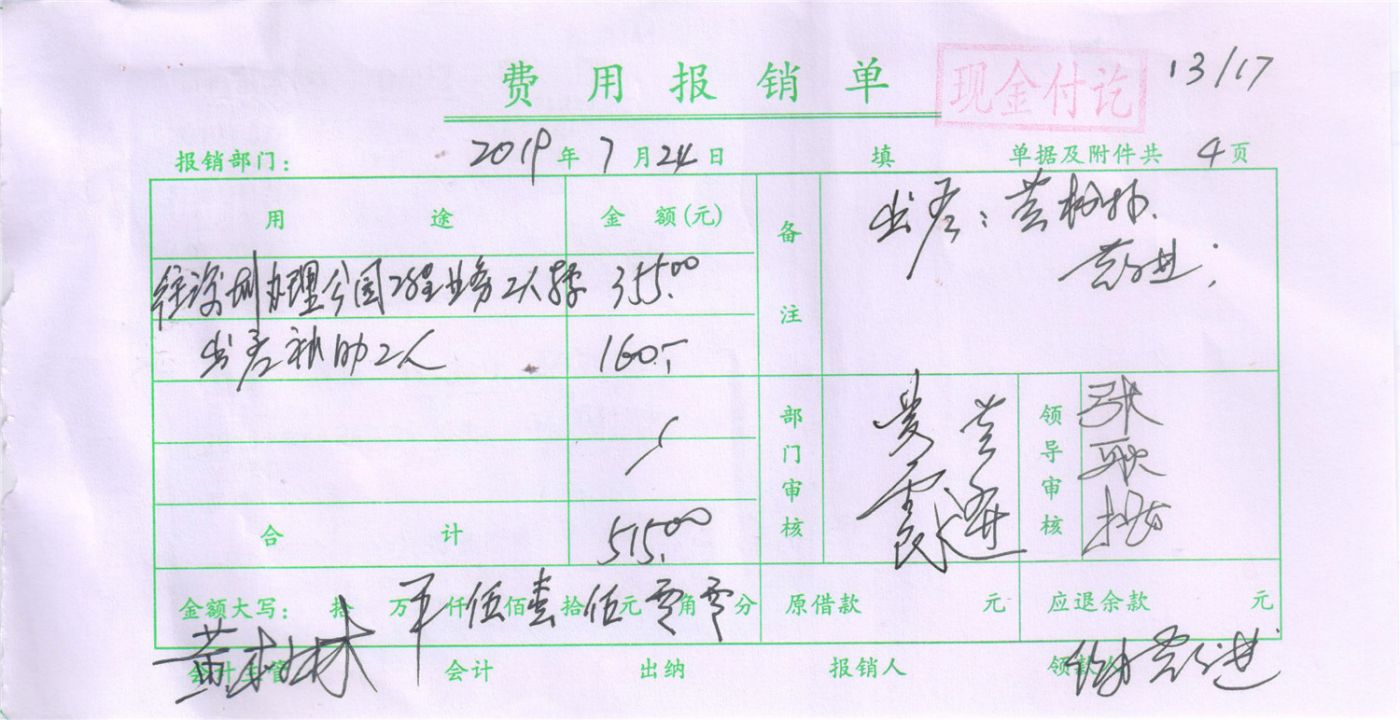 费用报销单
现金付讫
13/17
报销部门： 2019年7月24日 填 单据及附件共 4页
用途 金额(元)
备注
出差：黄树林.
往深圳办理公园工程业务2人 355.00
出差补助2人 160.-
部门审核
领导审核
合计 515.00
金额大写： 拾 万 仟伍佰壹拾伍元零角零分 原借款 元 应退余款 元
会计主管 会计 出纳 报销人 领款人
黄树林